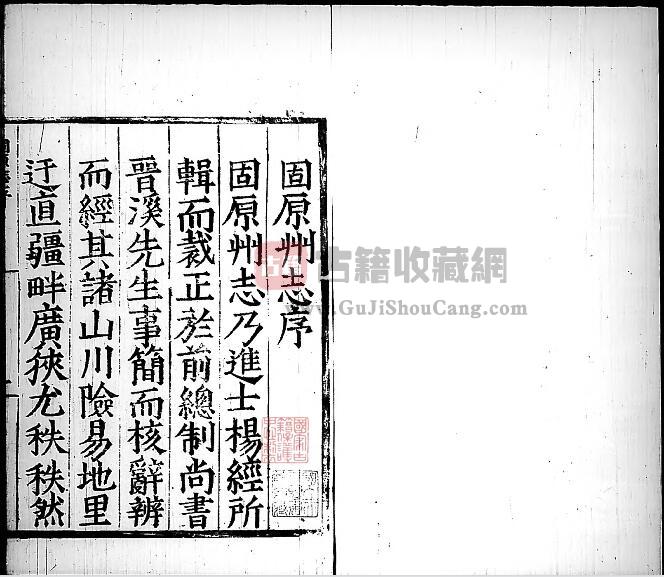 固原州志序
固原州志乃進士楊經所
輯而裁正於前總制尚書
晉溪先生事簡而核辭辨
而經其諸山川險易地里
迂直疆畔廣狹尤秩秩然
古籍收藏網
www.GuJiShouCang.com